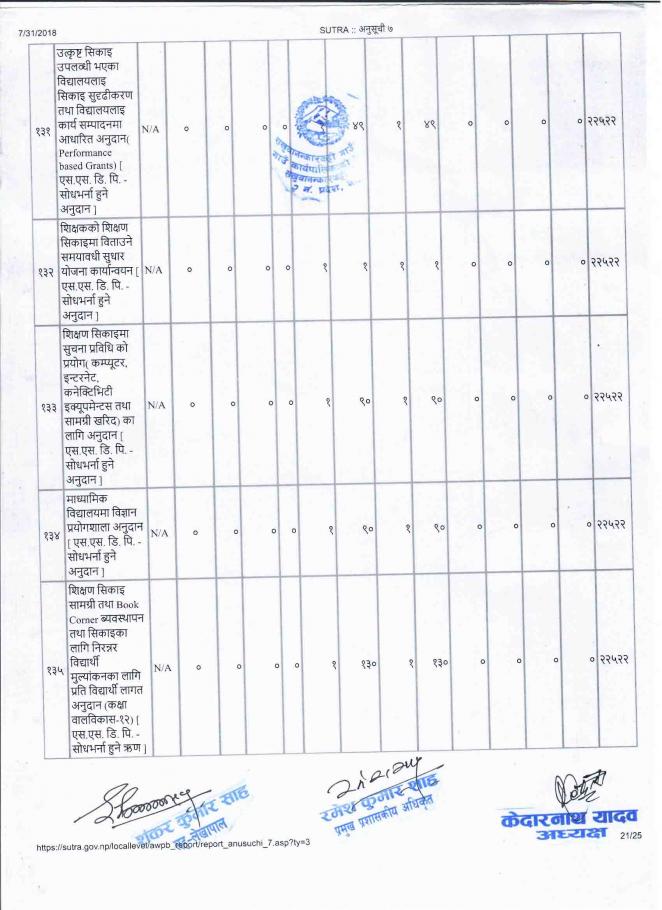 7/31/2018 SUTRA :: अनुसूची ७
१३१ उत्कृष्ट सिकाइ
उपलव्धी भएका
विद्यालयलाइ
सिकाइ सुदृढीकरण
तथा विद्यालयलाइ
कार्य सम्पादनमा
आधारित अनुदान(
Performance
based Grants) [
एस.एस. डि. पि. -
सोधभर्ना हुने
अनुदान ]
N/A ० ० ० ० ४९ १ ४९ ० ० ० ० २२५२२
१३२ शिक्षकको शिक्षण
सिकाइमा विताउने
समयावधी सुधार
योजना कार्यान्वयन [
एस.एस. डि. पि. -
सोधभर्ना हुने
अनुदान ]
N/A ० ० ० ० १ १ १ १ ० ० ० ० २२५२२
१३३ शिक्षण सिकाइमा
सुचना प्रविधि को
प्रयोग( कम्प्यूटर,
इन्टरनेट,
कनेक्टिभिटी
इक्यूपमेन्टस तथा
सामग्री खरिद) का
लागि अनुदान [
एस.एस. डि. पि. -
सोधभर्ना हुने
अनुदान ]
N/A ० ० ० ० १ ९० १ ९० ० ० ० ० २२५२२
१३४ माध्यामिक
विद्यालयमा विज्ञान
प्रयोगशाला अनुदान
[ एस.एस. डि. पि. -
सोधभर्ना हुने
अनुदान ]
N/A ० ० ० ० १ ९० १ ९० ० ० ० ० २२५२२
१३५ शिक्षण सिकाइ
सामग्री तथा Book
Corner ब्यवस्थापन
तथा सिकाइका
लागि निरन्नर
विद्यार्थी
मुल्यांकनका लागि
प्रति विद्यार्थी लागत
अनुदान (कक्षा
वालविकास-१२) [
एस.एस. डि. पि. -
सोधभर्ना हुने ऋण ]
N/A ० ० ० ० १ १३० १ १३० ० ० ० ० २२५२२
शंकर कुमार साह
लेखापाल
रमेश कुमार साह
प्रमुख प्रशासकीय अधिकृत
केदारनाथ यादव
अध्यक्ष
https://sutra.gov.np/locallevel/awpb_report/report_anusuchi_7.asp?ty=3 21/25